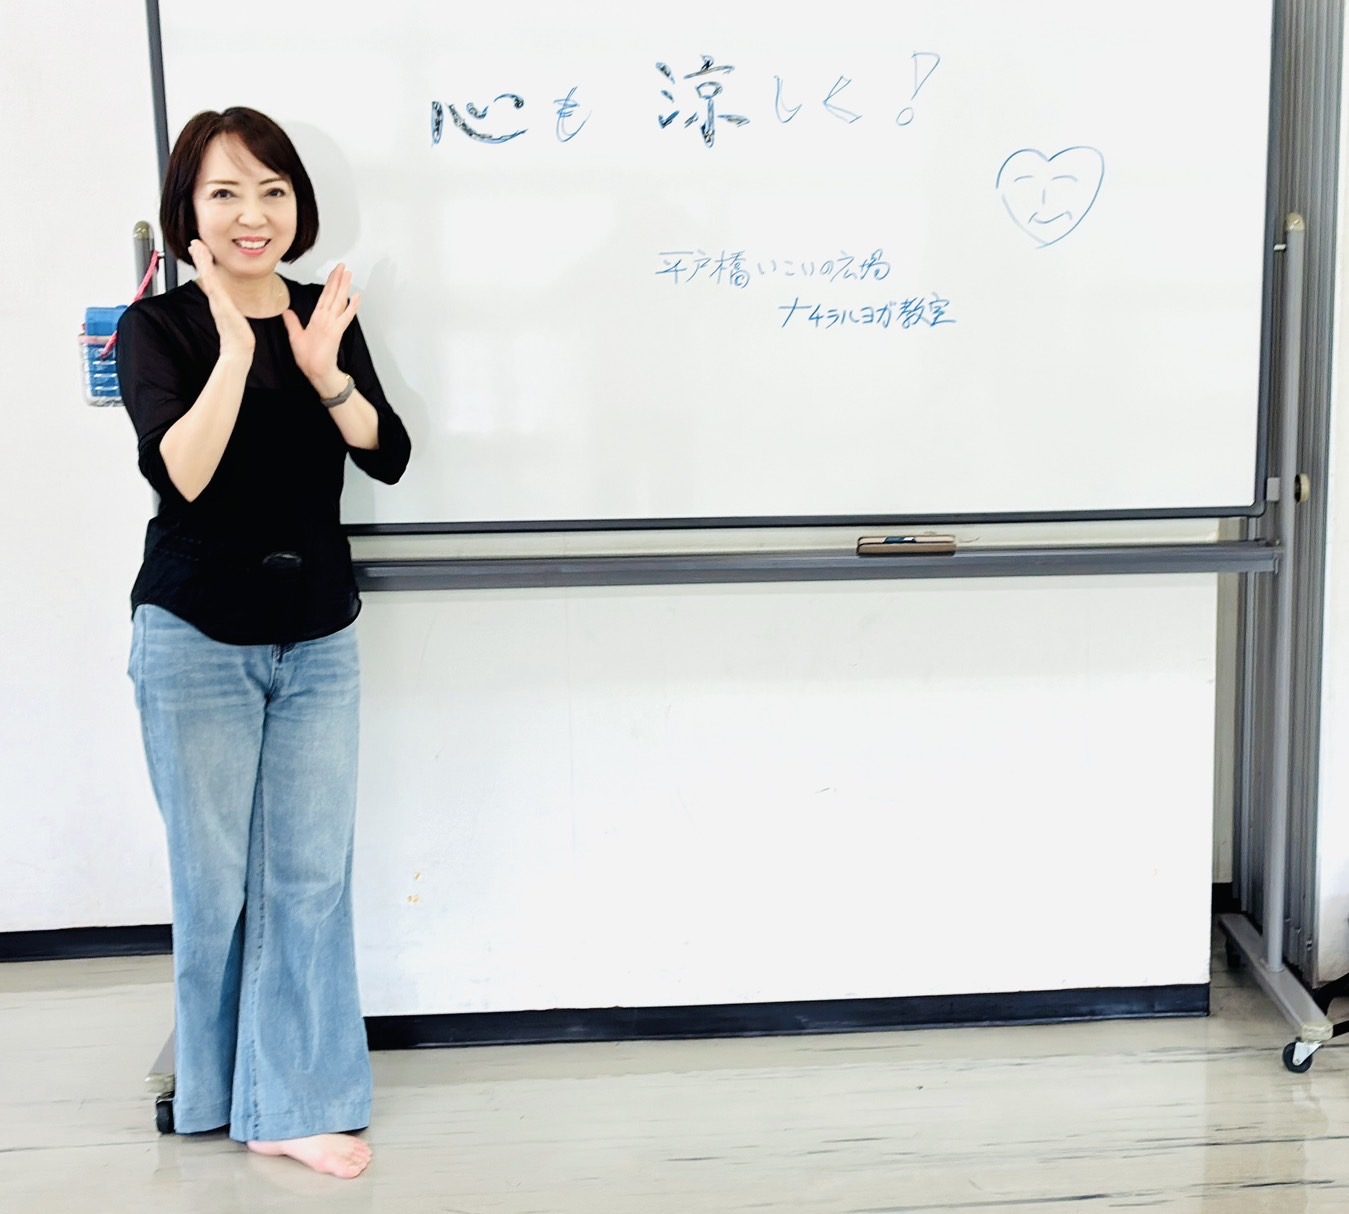 心も 涼しく！
平戸橋いこいの広場
ナチラルヨガ教室